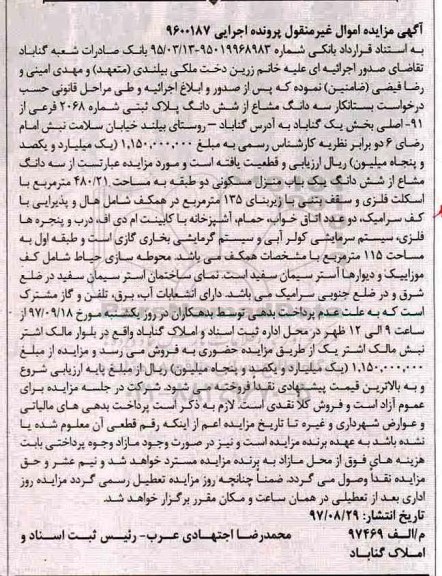 آگهی مزایده اموال غیرمنقول پرونده اجرایی ۹۶۰۰۱۸۷
به استناد قرارداد بانکی شماره ۹۵۰۱۹۹۶۸۹۸۳-۹۵/۰۳/۱۳ بانک صادرات شعبه گناباد
تقاضای صدور اجرائیه ای علیه خانم زرین دخت ملکی بیلندی (متعهد) و مهدی امینی و
رضا فیضی (ضامنین) نموده که پس از صدور و ابلاغ اجرائیه و طی مراحل قانونی حسب
درخواست بستانکار سه دانگ مشاع از شش دانگ پلاک ثبتی شماره ۲۰۶۸ فرعی از
۹۱- اصلی بخش یک گناباد به آدرس گناباد – روستای بیلند خیابان سلامت نبش امام
رضای ۶ دو برابر نظریه کارشناس رسمی به مبلغ ۱,۱۵۰,۰۰۰,۰۰۰ (یک میلیارد و یکصد
و پنجاه میلیون) ریال ارزیابی و قطعیت یافته است و مورد مزایده عبارتست از سه دانگ
مشاع از شش دانگ یک باب منزل مسکونی دو طبقه به مساحت ۴۸۰/۲۱ مترمربع با
اسکلت فلزی و سقف بتنی با زیربنای ۱۳۵ مترمربع در همکف شامل هال و پذیرایی با
کف سرامیک، دو عدد اتاق خواب، حمام، آشپزخانه با کابینت ام دی اف، درب و پنجره ها
فلزی، سیستم سرمایشی کولر آبی و سیستم گرمایشی بخاری گازی است و طبقه اول به
مساحت ۱۱۵ مترمربع با مشخصات همکف می باشد. محوطه سازی حیاط شامل کف
موزاییک و دیوارها آستر سیمان سفید است. نمای ساختمان آستر سیمان سفید در ضلع
شرق و در ضلع جنوبی سرامیک می باشد. دارای انشعابات آب، برق، تلفن و گاز مشترک
است که به علت عدم پرداخت بدهی توسط بدهکاران در روز یکشنبه مورخ ۹۷/۰۹/۱۸ از
ساعت ۹ الی ۱۲ ظهر در محل اداره ثبت اسناد و املاک گناباد واقع در بلوار مالک اشتر
نبش مالک اشتر یک از طریق مزایده حضوری به فروش می رسد و مزایده از مبلغ
۱,۱۵۰,۰۰۰,۰۰۰ (یک میلیارد و یکصد و پنجاه میلیون) ریال از مبلغ پایه ارزیابی شروع
و به بالاترین قیمت پیشنهادی نقدا فروخته می شود. شرکت در جلسه مزایده برای
عموم آزاد است و فروش کلا نقدی است. لازم به ذکر است پرداخت بدهی های مالیاتی
و عوارض شهرداری و غیره تا تاریخ مزایده اعم از اینکه رقم قطعی آن معلوم شده یا
نشده باشد به عهده برنده مزایده است و نیز در صورت وجود مازاد وجوه پرداختی بابت
هزینه های فوق از محل مازاد به برنده مزایده مسترد خواهد شد و نیم عشر و حق
مزایده نقدا وصول می گردد. ضمناً چنانچه روز مزایده تعطیل رسمی گردد مزایده روز
اداری بعد از تعطیلی در همان ساعت و مکان مقرر برگزار خواهد شد.
تاریخ انتشار: ۹۷/۰۸/۲۹
م/الف ۹۷۴۶۹ محمدرضا اجتهادی عرب- رئیس ثبت اسناد و
املاک گناباد